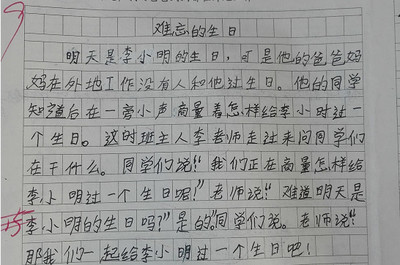 难忘的生日
明天是李小明的生日，可是他的爸爸妈
妈在外地工作没有人和他过生日。他的同学
知道后在一旁小声商量着怎样给李小时过一
个生日。这时班主人李老师走过来问同学们
在干什么。同学们说“我们正在商量怎样给
李小明过一个生日呢！”老师说“难道明天是
李小明的生日吗？”是的”同学们说。老师说“
那我们一起给李小明过一个生日吧！